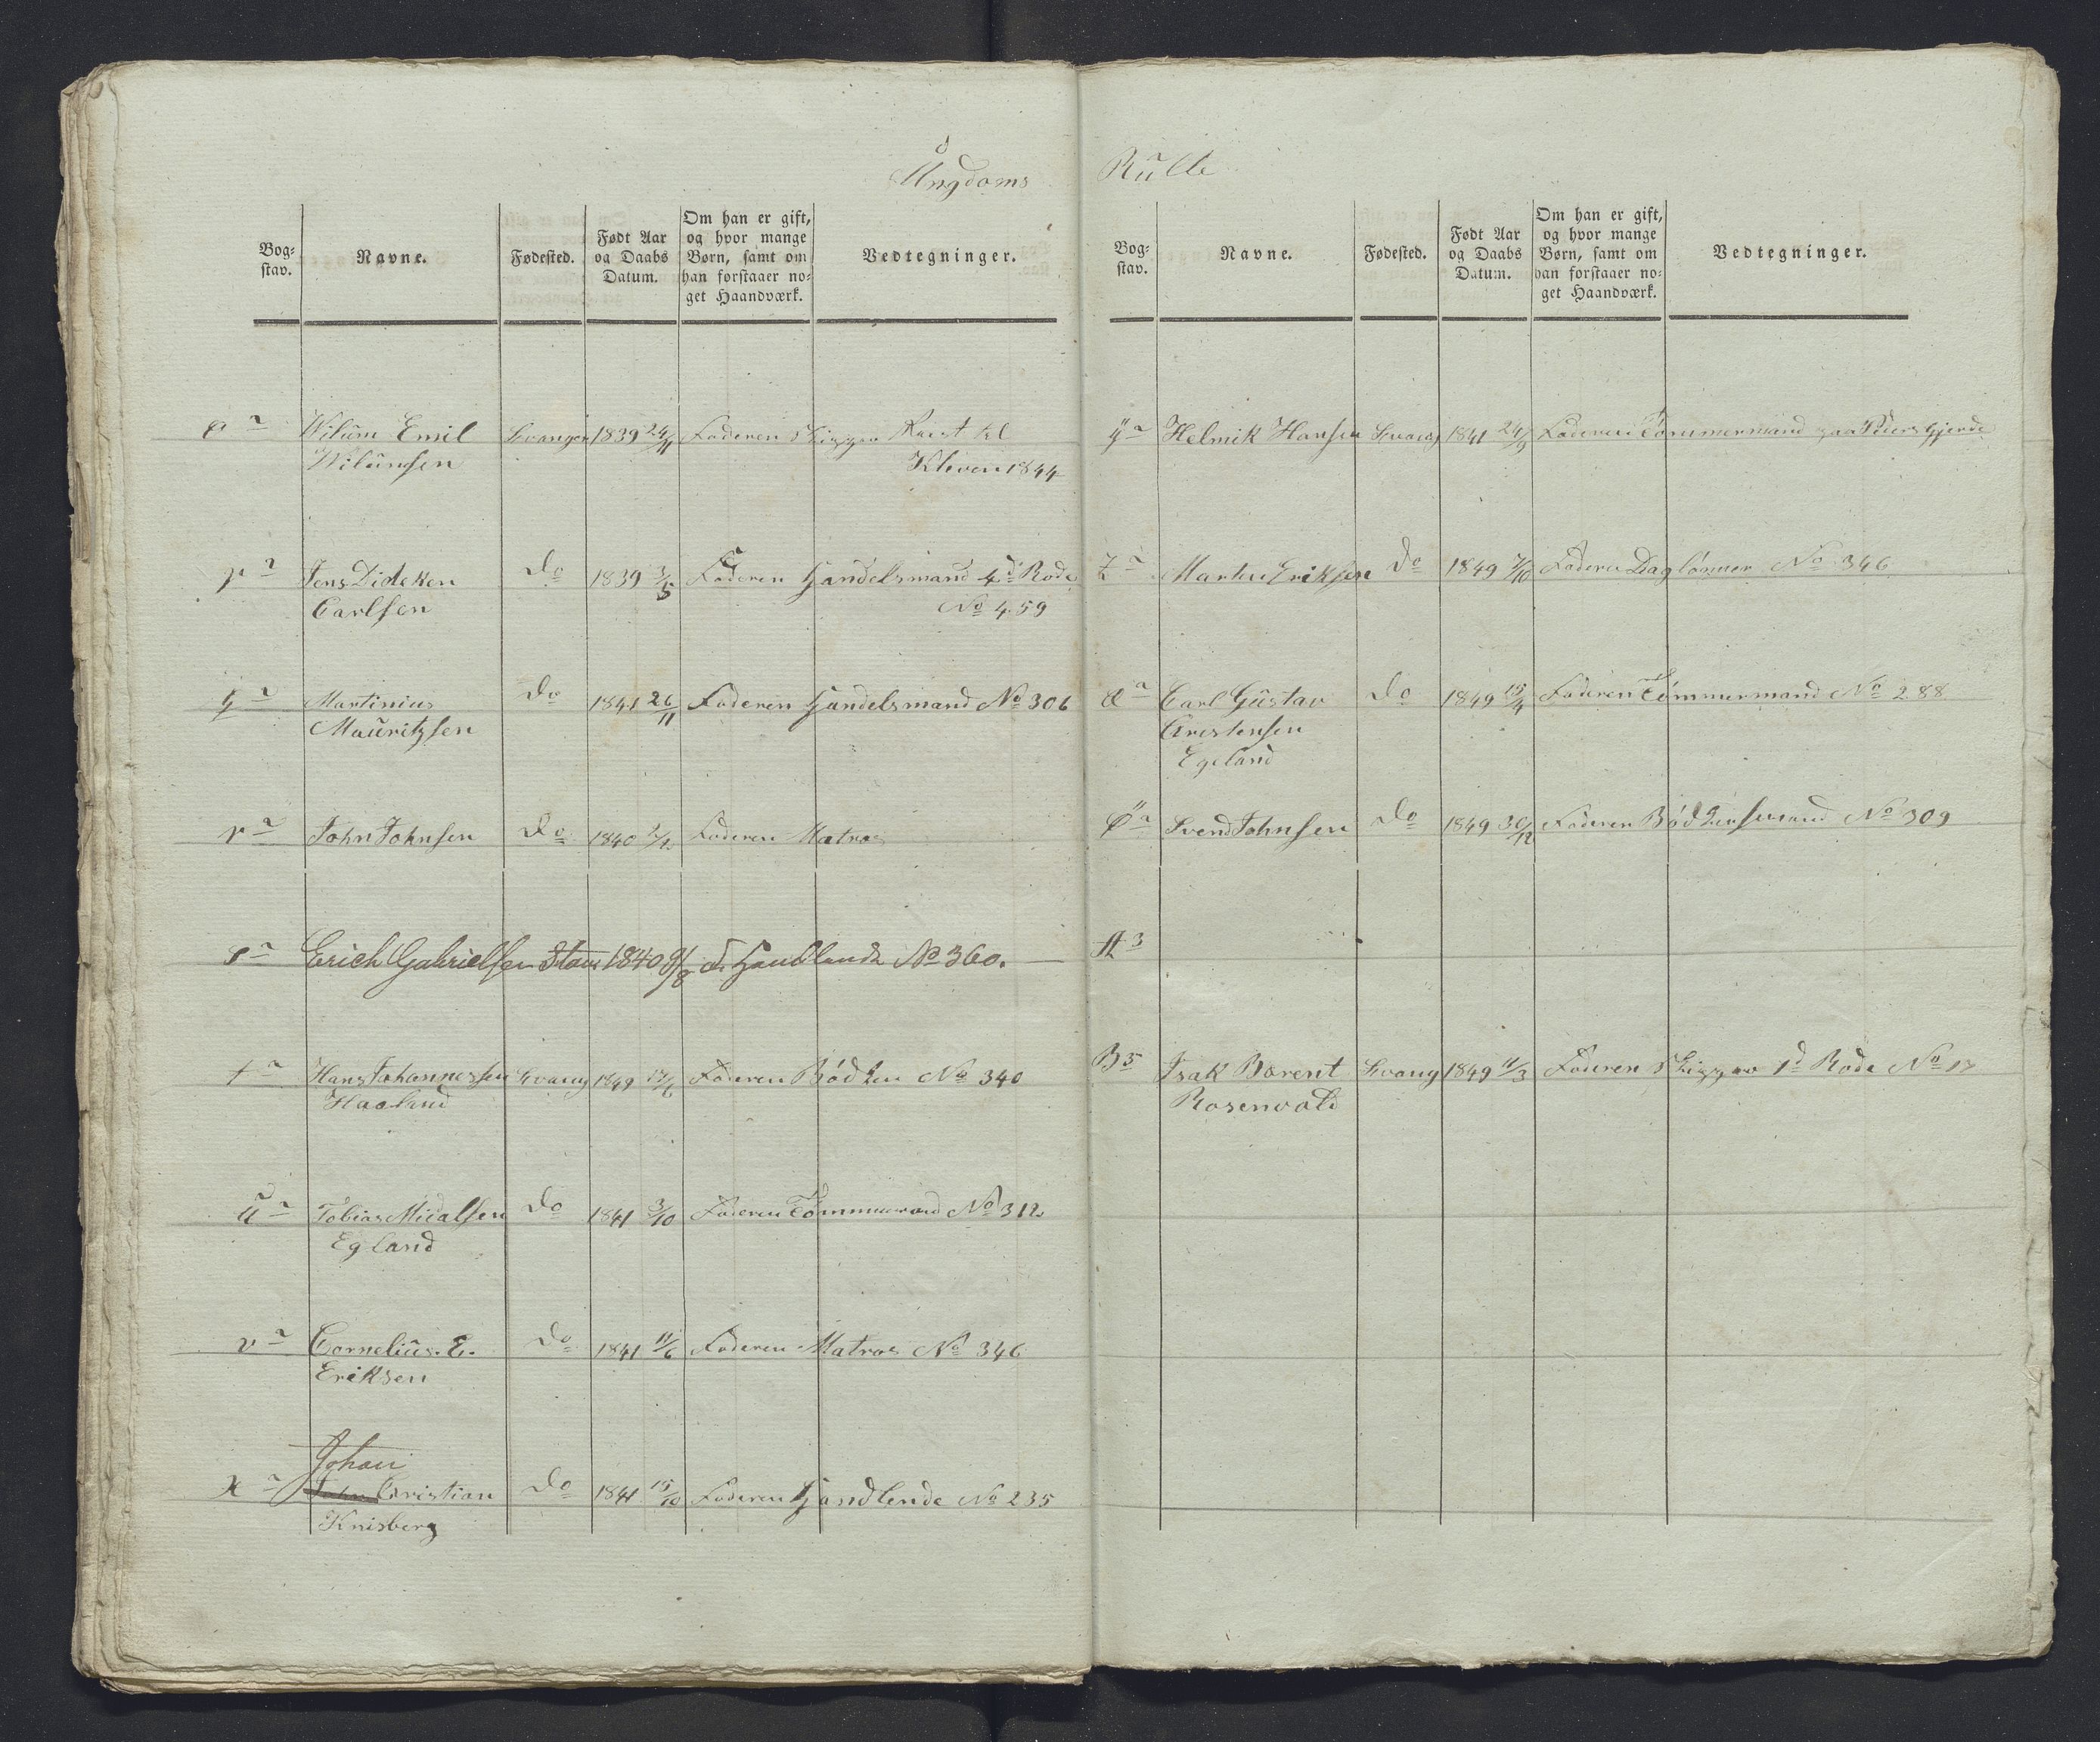 Ungdoms Rulle
Bog-
stav.
Navne.
Fødested.
Født Aar
og Daabs
Datum.
Om han er gift,
og hvor mange
Børn, samt om
han forstaaer no-
get Haandværk.
Vedtegninger.
o 2 Wilum Emil 1839 24/11 Faderen Skipper Reist til
Wilumsen Kleven 1844
p 2 Jens Dideken Do 1839 3/5 Faderen Handelsmand 4d Rode
Carlsen No 459
q 2 Martinius Do 1841 26/11 Faderen Handelsmand No 306
Mauritzsen
r 2 John Johnsen Do 1840 Faderen Matros
s 2 Erich Gabrielsen Stav 1840 9/8 F. Handlende No 360.
t 2 Hans Johannessen Svang 1849 Faderen Bødker No 340
Haaland
u 2 Tobias Micalsen Do 1841 3/10 Faderen Tømmermand No 312
Egland
v 2 Cornelius. E. Do 1841 11/6 Faderen Matros No 346
Eriksen
Johan
x 2 John Cristian Do 1841 15/10 Faderen Handlende No 235
Knisberg
Bog-
stav.
Navne.
Fødested.
Født Aar
og Daabs
Datum.
Om han er gift,
og hvor mange
Børn, samt om
han forstaaer no-
get Haandværk.
Vedtegninger.
ÿ 2 Helmik Hansen Svang 1841 24/9 Faderen Tømmermand paa Peders Gjerde
Z 2 Martin Eriksen Do 1849 7/10 Faderen Daglønner No 346
Æ 2 Carl Gustav Do 1849 15/4 Faderen Tømmermand No 288
Cristensen
Egeland
Ø 2 Svend Johnsen Do 1849 30/12 Faderen No 309
A 3
B 3 Isak Berent Svang 1849 11/3 Faderen Skipper 1d Rode No 17
Rosenvald